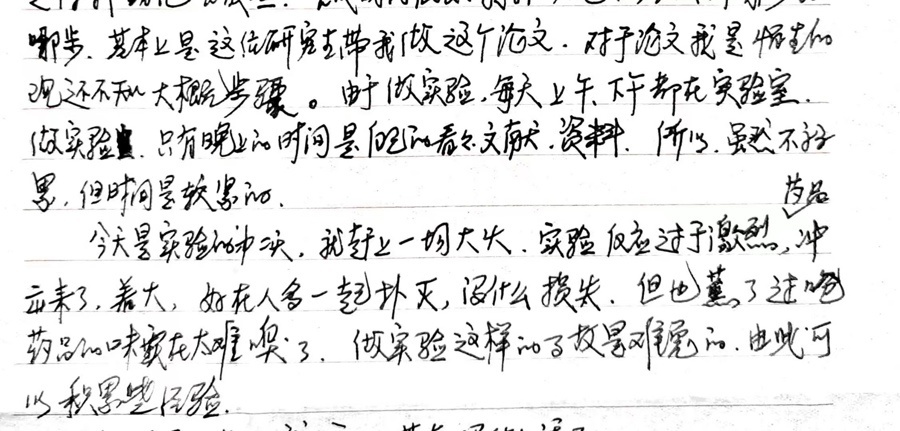 哪步。基本上是这位研究生带我做这个论文。对于论文我是陌生的
现还不知大概步骤。由于做实验,每天上午、下午都在实验室
做实验,只有晚上的时间是自己的看看文献、资料。所以,虽然不好
累,但时间是较紧的。
今天是实验的第二次,就赶上一场大火。实验反应过于激烈,药品冲
出来了,着火,好在人多一起扑灭,没什么损失。但也熏了过呛
药品的味实在太难嗅了。做实验这样的事故是难免的。由此可
以积累些经验。